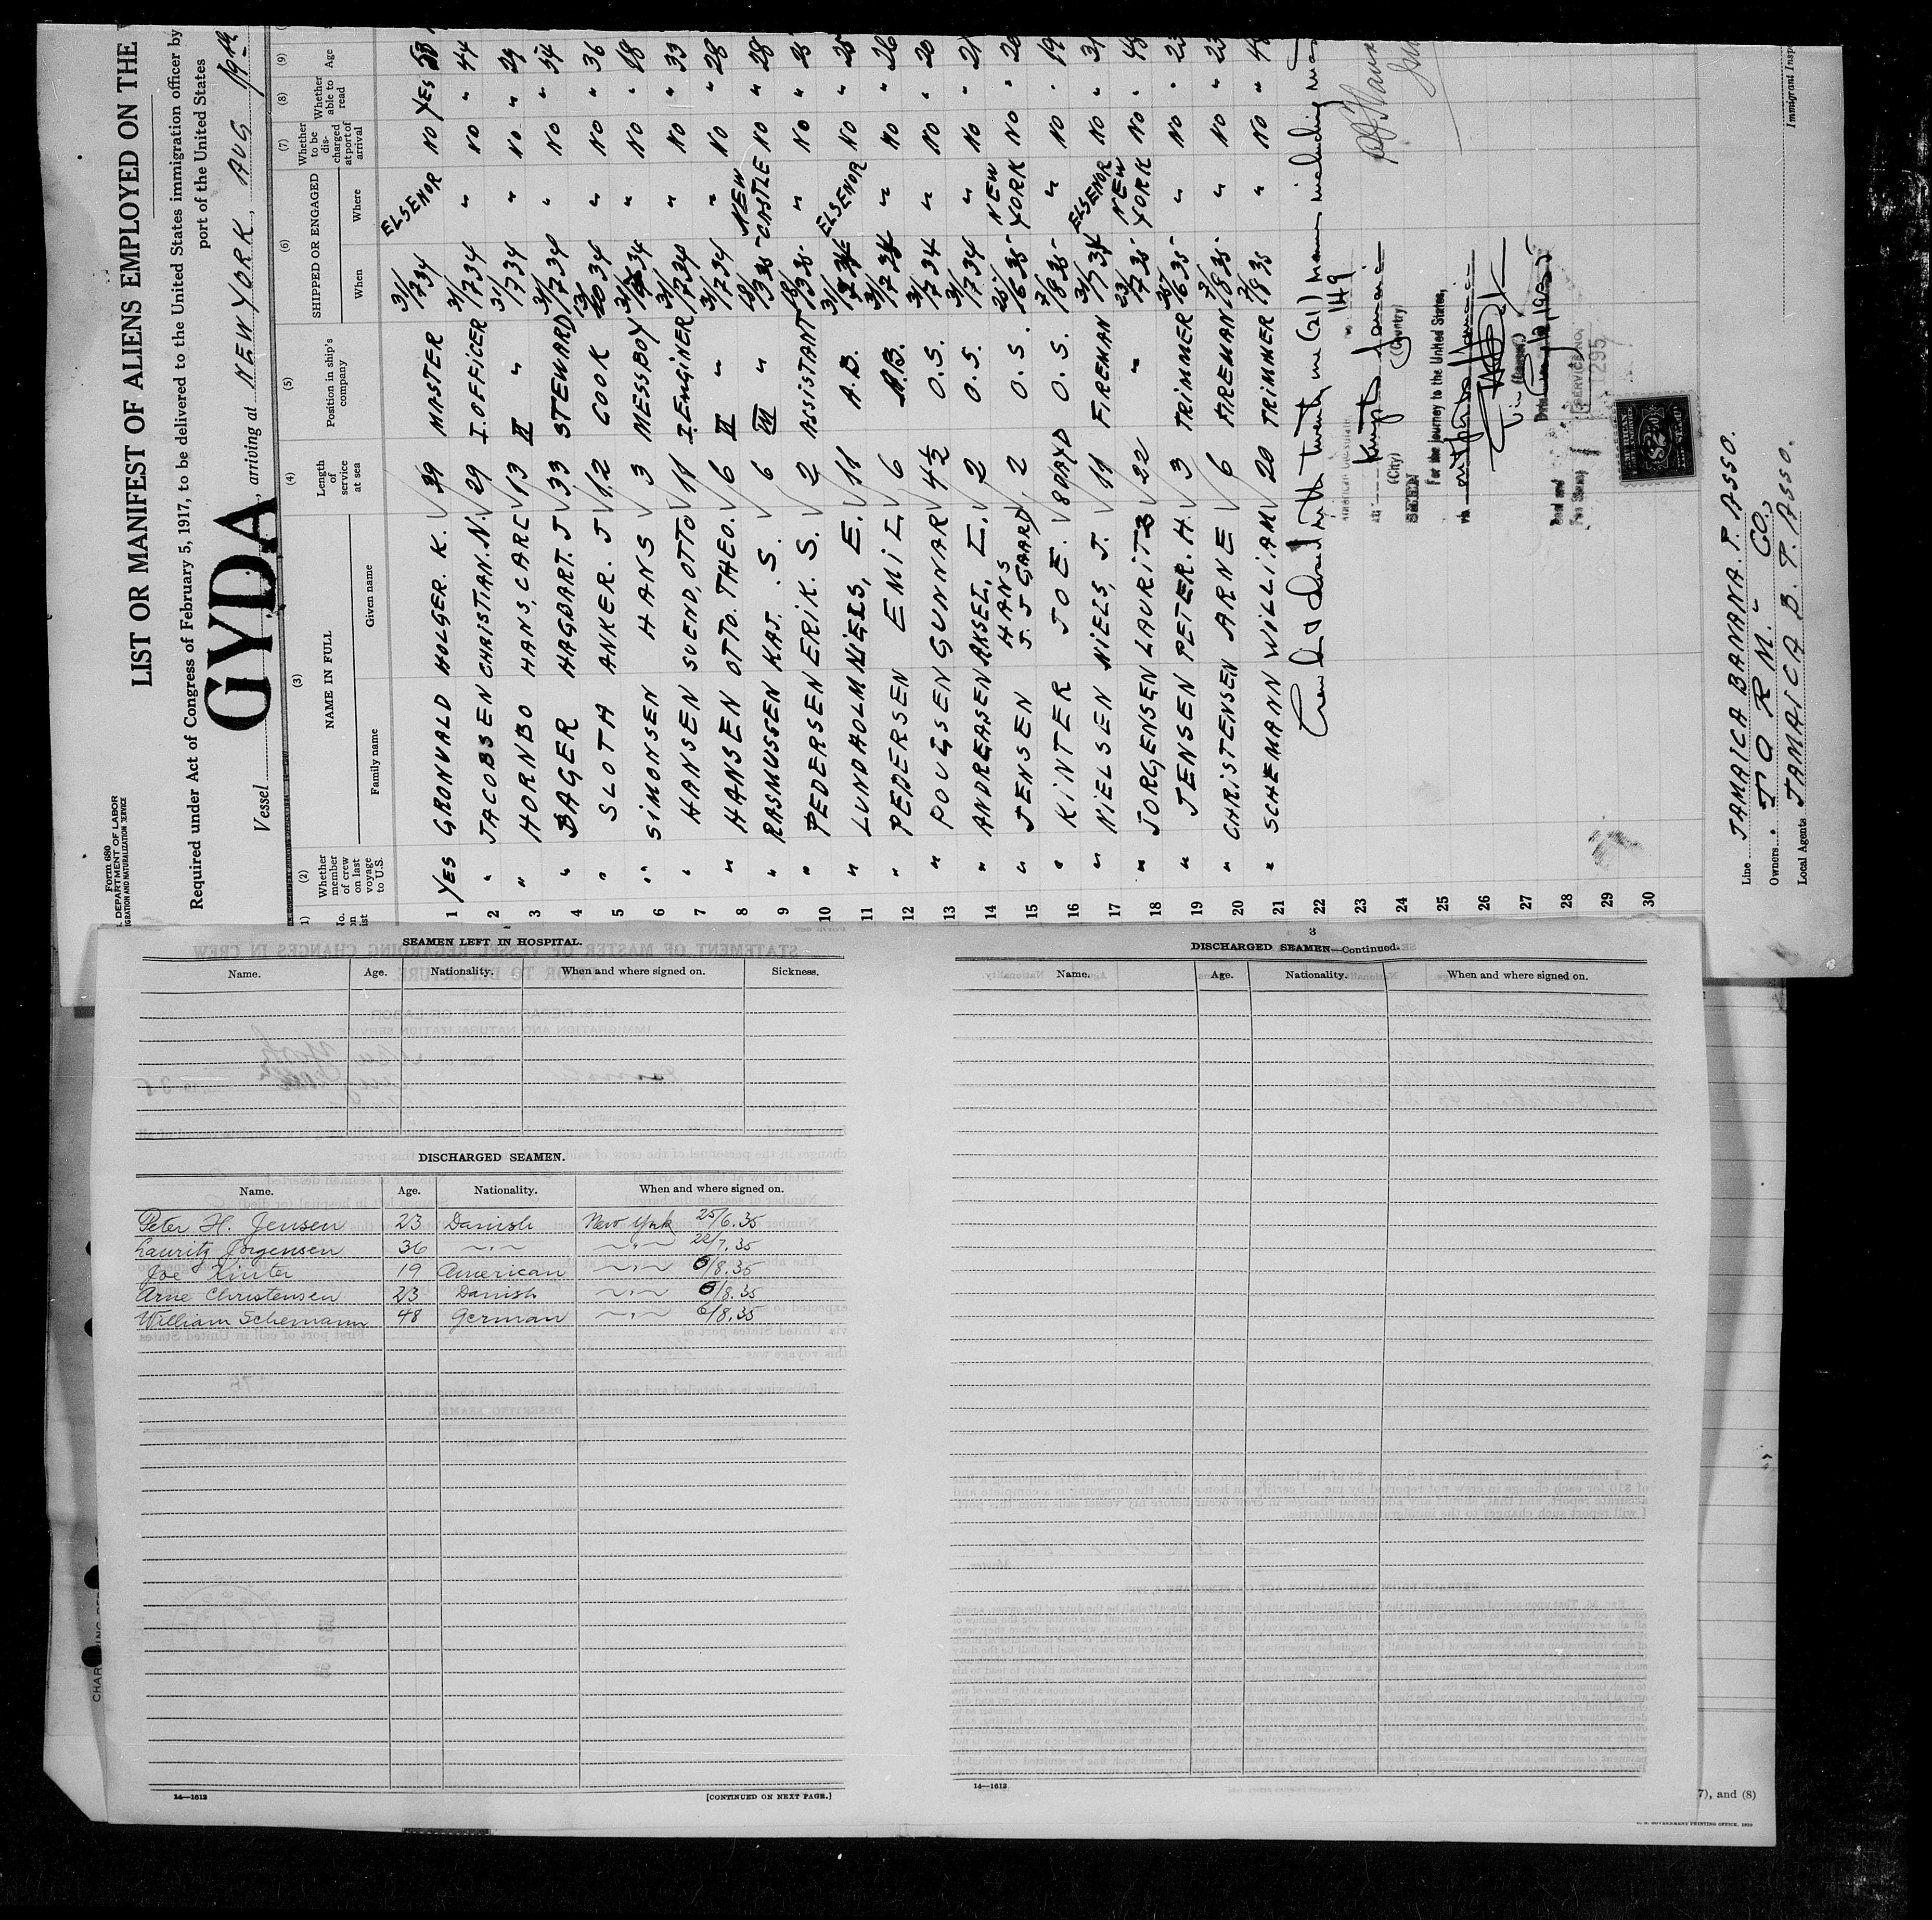 Form 680
DEPARTMENT OF LABOR
IMMIGRATION AND NATURALIZATION SERVICE
LIST OR MANIFEST OF ALIENS EMPLOYED ON THE
Required under Act of Congress of February 5, 1917, to be delivered to the United States immigration officer by
port of the United States
Vessel GYDA, arriving at NEW YORK, AUG 19th
(2) (3) (4) (5) (6) (7) (8) (9)
Whether member of crew on last voyage to U.S. NAME IN FULL Length of service at sea Position in ship's company SHIPPED OR ENGAGED Whether to be discharged at port of arrival Whether able to read Age
Family name Given name When Where
1 YES GRONVALD HOLGER. K. 39 MASTER 31/7 34 ELSENOR NO YES
2 " JACOBSEN CHRISTIAN. N. 29 I. OFFICER 31/7 34 " NO " 44
3 " HORNBO HANS, CARL 13 II " 31/7 34 " NO " 29
4 " BAGER HAGBART. J 33 STEWARD 31/7 34 " NO " 54
5 " SLOTH ANKER. J 12 COOK 34 " NO " 36
6 " SIMONSEN HANS 3 MESSBOY 34 " NO " 18
7 " HANSEN SVEND, OTTO 11 I. ENGINER 31/7 34 " NO " 33
8 " HANSEN OTTO. THEO. 6 II " 31/7 34 " NO " 28
9 " RASMUSSEN KAJ. S. 6 III " 35 NEW CASTLE NO " 28
10 " PEDERSEN ERIK. S. 2 ASSISTANT 35 " NO " 25
11 " LUNDHOLM NIELS, E. 11 A.B. 31/7 34 ELSENOR NO " 25
12 " PEDERSEN EMIL 6 A.B. 31/7 34 " NO " 26
13 " POULSEN GUNNAR 4½ O.S. 31/7 34 " NO " 20
14 " ANDREASEN AKSEL, E. 2 O.S. 31/7 34 " NO " 21
15 " JENSEN HANS J. J GAARD 2 O.S. 25/6 35 NEW YORK NO " 20
16 " KINTER JOE. 8 DAYD O.S. 7/8 35 " NO " 19
17 " NIELSEN NIELS, J. 11 FIREMAN 31/7 34 ELSENOR NO " 31
18 " JORGENSEN LAURITS 22 " 23/7 35 NEW YORK NO " 48
19 " JENSEN PETER. H. 3 TRIMMER 25/6 35 " NO " 23
20 " CHRISTENSEN ARNE 6 FIREMAN 7/8 35 " NO " 23
21 " SCHEMANN WILLIAM 20 TRIMMER 7/8 35 " NO " 48
22 Crew list closed with twenty one (21) names including
23
24
25
26
27
28
29
30
(City) (Country)
For the journey to the United States,
SERVICE NO.
1295
Line JAMAICA BANANA. P. ASSO.
Owners TORM. " CO.,
Local Agents JAMAICA B. P. ASSO.
Immigrant Insp
SEAMEN LEFT IN HOSPITAL.
Name. Age. Nationality. When and where signed on. Sickness.
DISCHARGED SEAMEN.
Name. Age. Nationality. When and where signed on.
Peter H. Jensen 23 Danish New York 25/6.35
Lauritz Jörgensen 36 ~"~ ~"~ 22/7.35
Joe Kinter 19 American ~"~ 6/8.35
Arne Christensen 23 Danish ~"~ 6/8.35
William Schemann 48 German ~"~ 6/8.35
14—1613
[CONTINUED ON NEXT PAGE.]
3
DISCHARGED SEAMEN—Continued.
Name. Age. Nationality. When and where signed on.
14—1613
7), and (8)